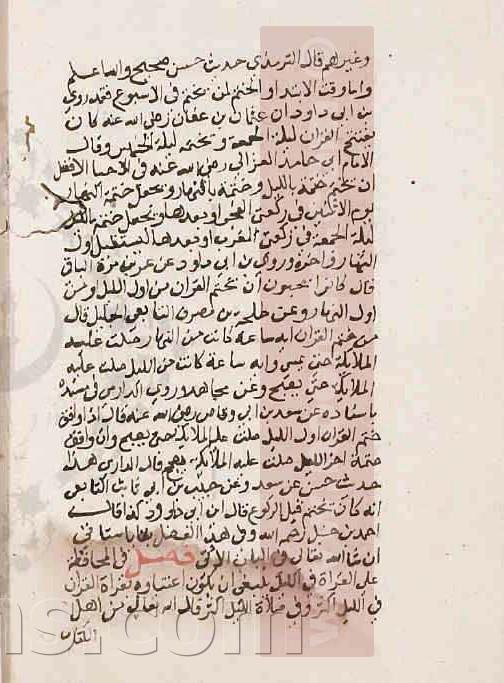 وغيرهم قال الترمذي حديث حسن صحيح والله اعلم
واما وقت الابتداو الختم لمن يختم في الاسبوع فقد روي
بن ابي داود ان عثمان بن عفان رضي الله عنه كان
يفتتح القران ليلة الجمعة ويختمه ليلة الخميس وقال
الامام ابي حامد الغزالي رضي الله عنه في الاحيا الافضل
ان يختم ختمة بالليل وختمة بالنهار ويجعل ختمة النهار
يوم الاثنين في ركعتي الفجر او بعدها ويجعل ختمة بالليل
ليلة الجمعة في ركعتي المغرب او بعدها ليستقبل اول
النهار واخره وروي بن ابي داود عن عمرو بن مرة التابعي
قال كانوا يحبون ان يختم القران من اول الليل ومن
اول النهار وعن طلحة بن مصرف التابعي الجليل قال
من ختم القران ايه ساعة كانت من النهار صلت عليه
الملايكة حتى يمسي وايه ساعة كانت من الليل صلت عليه
الملايكة حتى يصبح وعن مجاهد وروي الدارمي في مسنده
باسناده عن سعد بن ابي وقاص رضي الله عنه قال اذا وافق
ختم القران اول الليل صلت عليه الملايكة حتى يصبح وان وافق
ختمة اخر الليل صلت عليه الملايكة قال الدارمي هذا
حديث حسن عن سعد وعن حبيب بن ابي ثابت التابعي
انه كان يختم قبل الركوع قال ابن ابي داود وكذا قال
احمد بن حنبل رحمه الله وفي هذا الفصل بقايا ستاتي
ان شا الله تعالى في الباب الاتي فصل في المحافظة
على القراة في الليل ينبغي ان يكون اعتناوه بقراة القران
في الليل اكثر وفي صلاة الليل اكثر قال الله تعالى من اهل
الكتاب